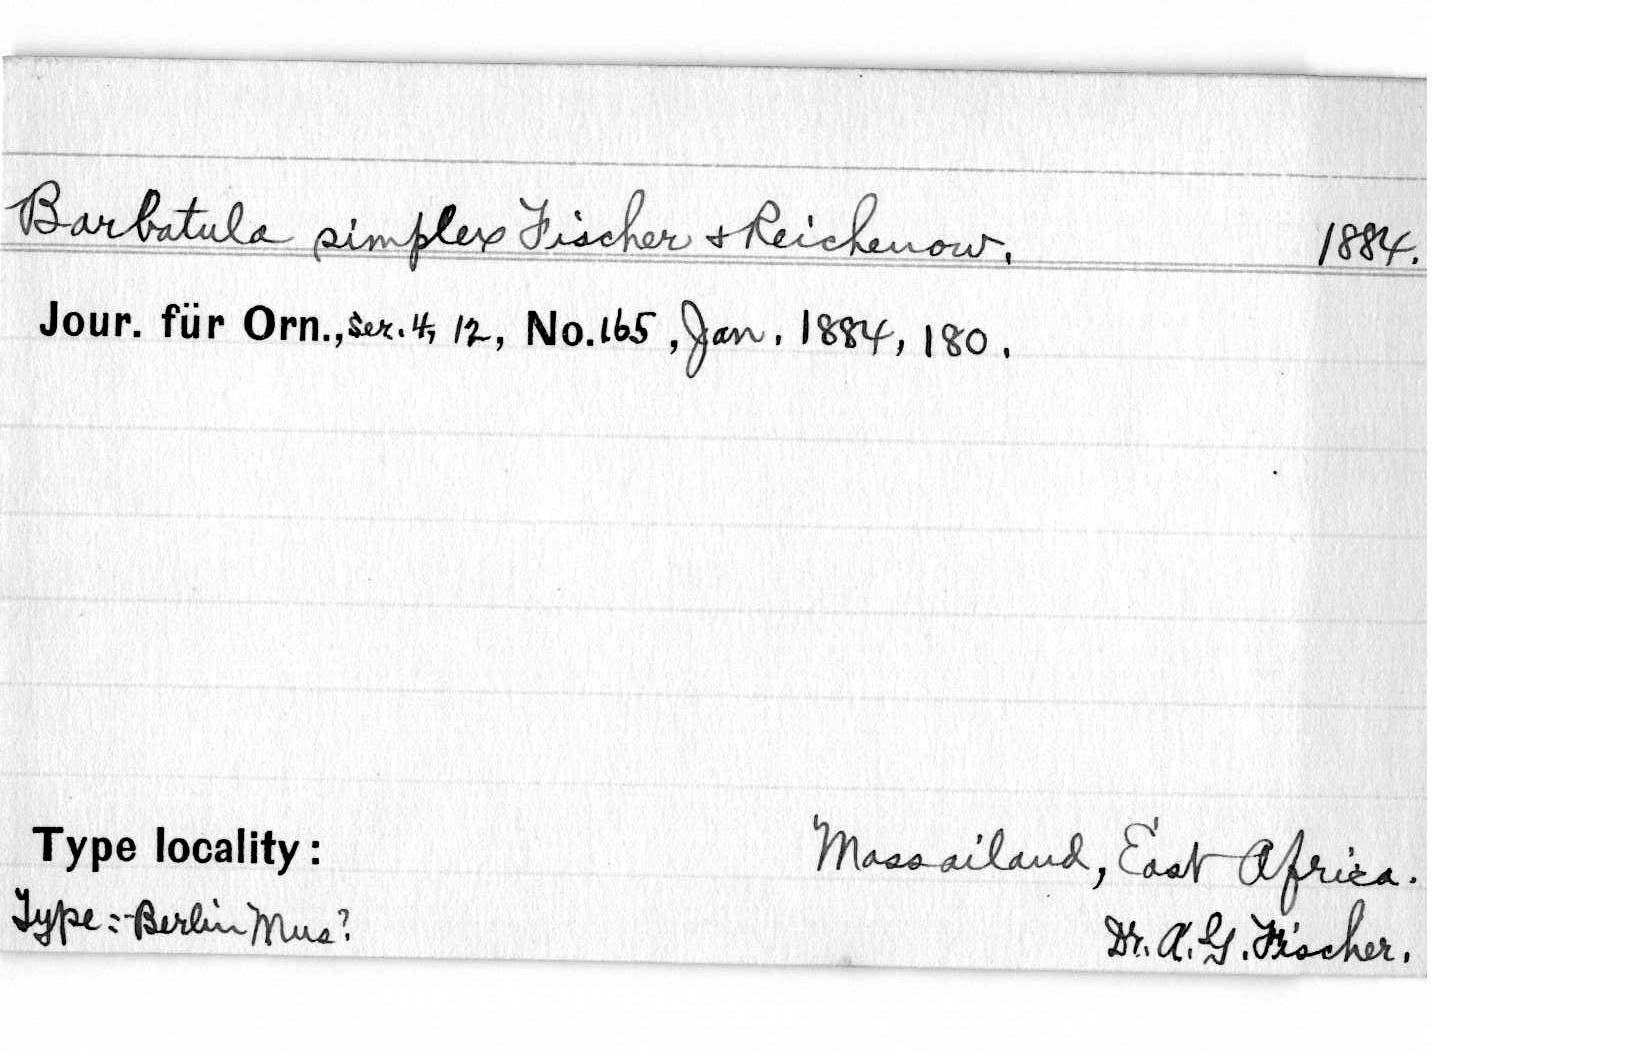 Barbatula simplex Fischer + Reichenow. 1884.
Jour. für Orn., Ser. 4, 12, No. 165, Jan. 1884, 180.
Type locality: Massailand, East Africa.
Type:- Berlin Mus? Dr. A. G. Fischer.